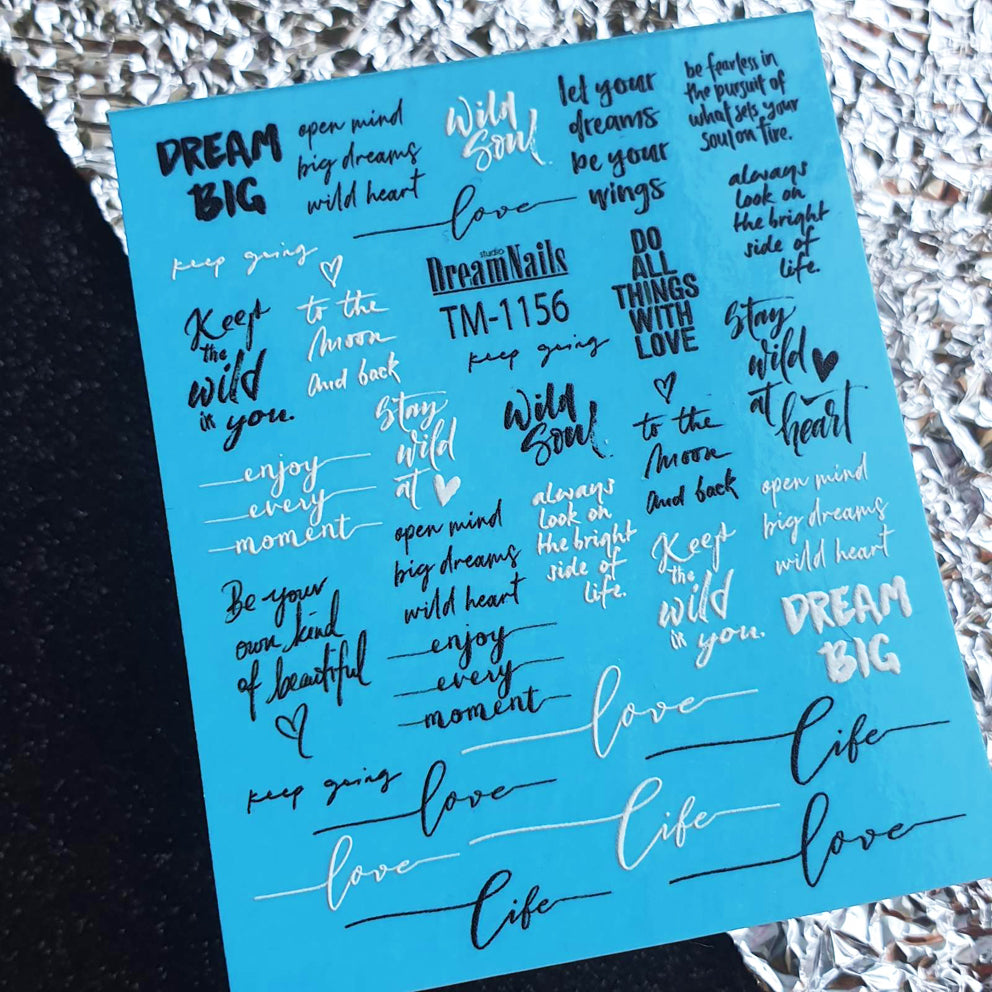 DREAM
BIG
open mind
big dreams
wild heart
Wild
Soul
let your
dreams
be your
wings
be fearless in
the pursuit of
what sets your
soul on fire.
love
always
look on
the bright
side of
life.
keep going
studio
DreamNails
TM-1156
DO
ALL
THINGS
WITH
LOVE
Keep
the
wild
in you.
to the
Moon
and back
keep going
Stay
wild
at
heart
Stay
wild
at
Wild
Soul
to the
Moon
and back
enjoy
every
moment
open mind
big dreams
wild heart
always
look on
the bright
side of
life.
Keep
the
wild
in you.
open mind
big dreams
wild heart
DREAM
BIG
Be your
own kind
of beautiful
enjoy
every
moment
love
life
keep going
love
life
love
love
life